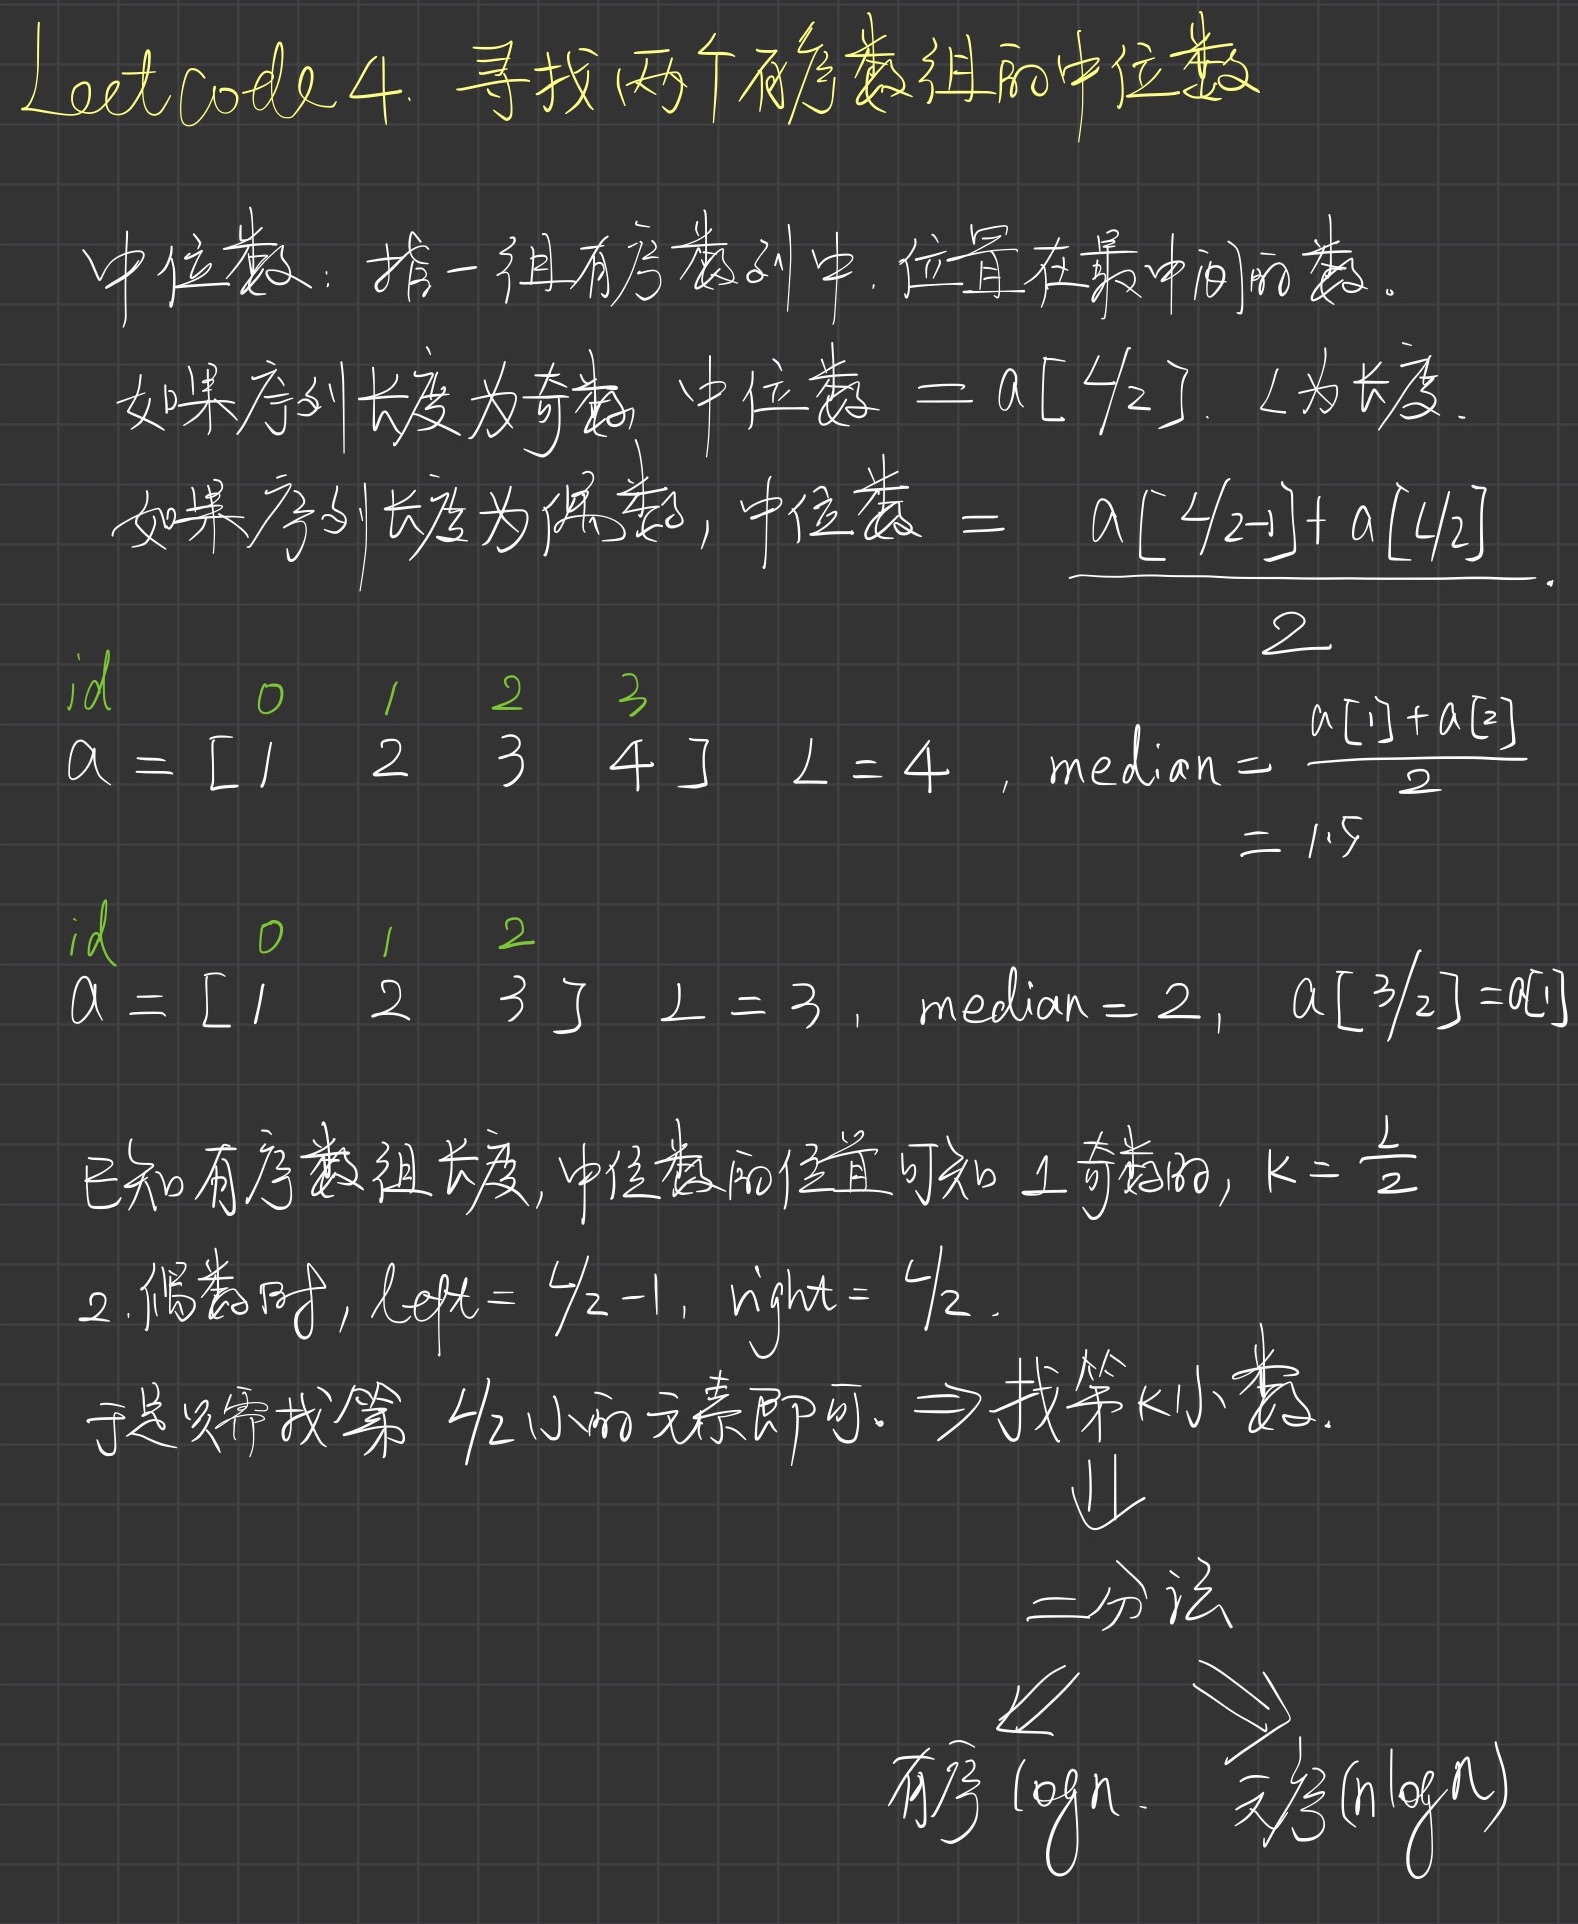 Leetcode 4. 寻找两个有序数组的中位数
中位数: 指一组有序数列中, 位置在最中间的数。
如果序列长度为奇数, 中位数 = a[L/2]. L为长度.
如果序列长度为偶数, 中位数 = (a[L/2-1] + a[L/2]) / 2.
id 0 1 2 3
a = [1 2 3 4] L = 4, median = (a[1] + a[2]) / 2
= 1.5
id 0 1 2
a = [1 2 3] L = 3, median = 2, a[3/2] = a[1]
已知有序数组长度, 中位数的位置可知 1 奇数的, K = L/2
2. 偶数时, left = L/2-1, right = L/2.
于是只需找第 L/2 小的元素即可. ⇒ 找第K小数.
⇓
二分法
⇙ ⇘
有序 logn. 无序(nlogn)